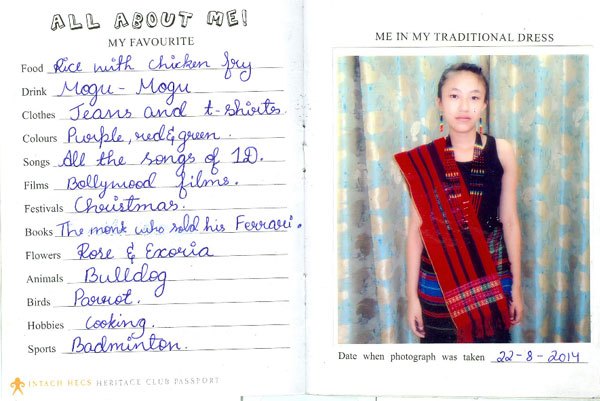 ALL ABOUT ME!
MY FAVOURITE
Food Rice with chicken fry
Drink Mogu - Mogu
Clothes Jeans and t-shirts.
Colours Purple, red & green.
Songs All the songs of 1D.
Films Bollywood films.
Festivals Christmas.
Books The monk who sold his Ferrari.
Flowers Rose & Exoria
Animals Bulldog
Birds Parrot.
Hobbies Cooking.
Sports Badminton.
INTACH HECS HERITAGE CLUB PASSPORT
ME IN MY TRADITIONAL DRESS
Date when photograph was taken 22-8-2014